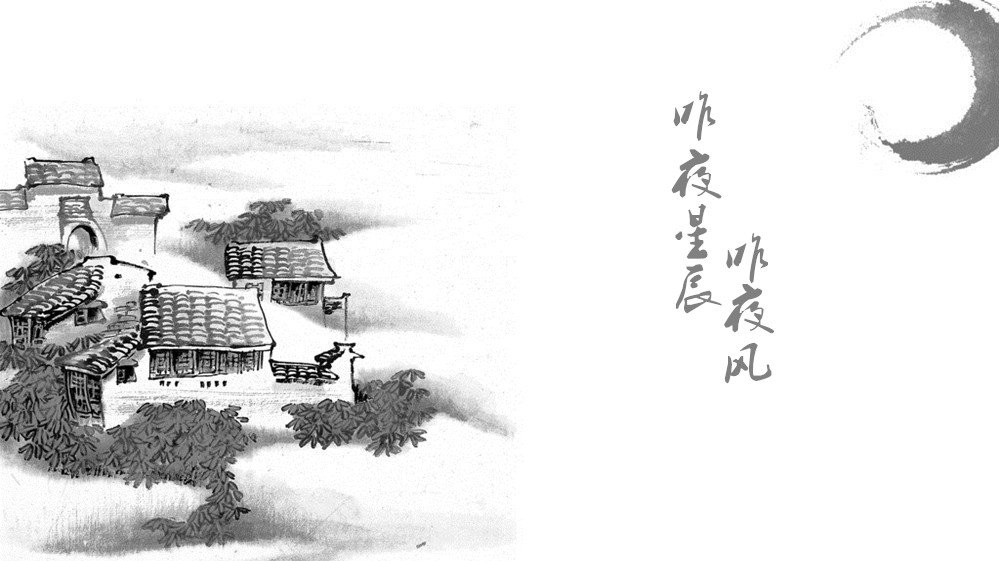 昨夜星辰
昨夜风